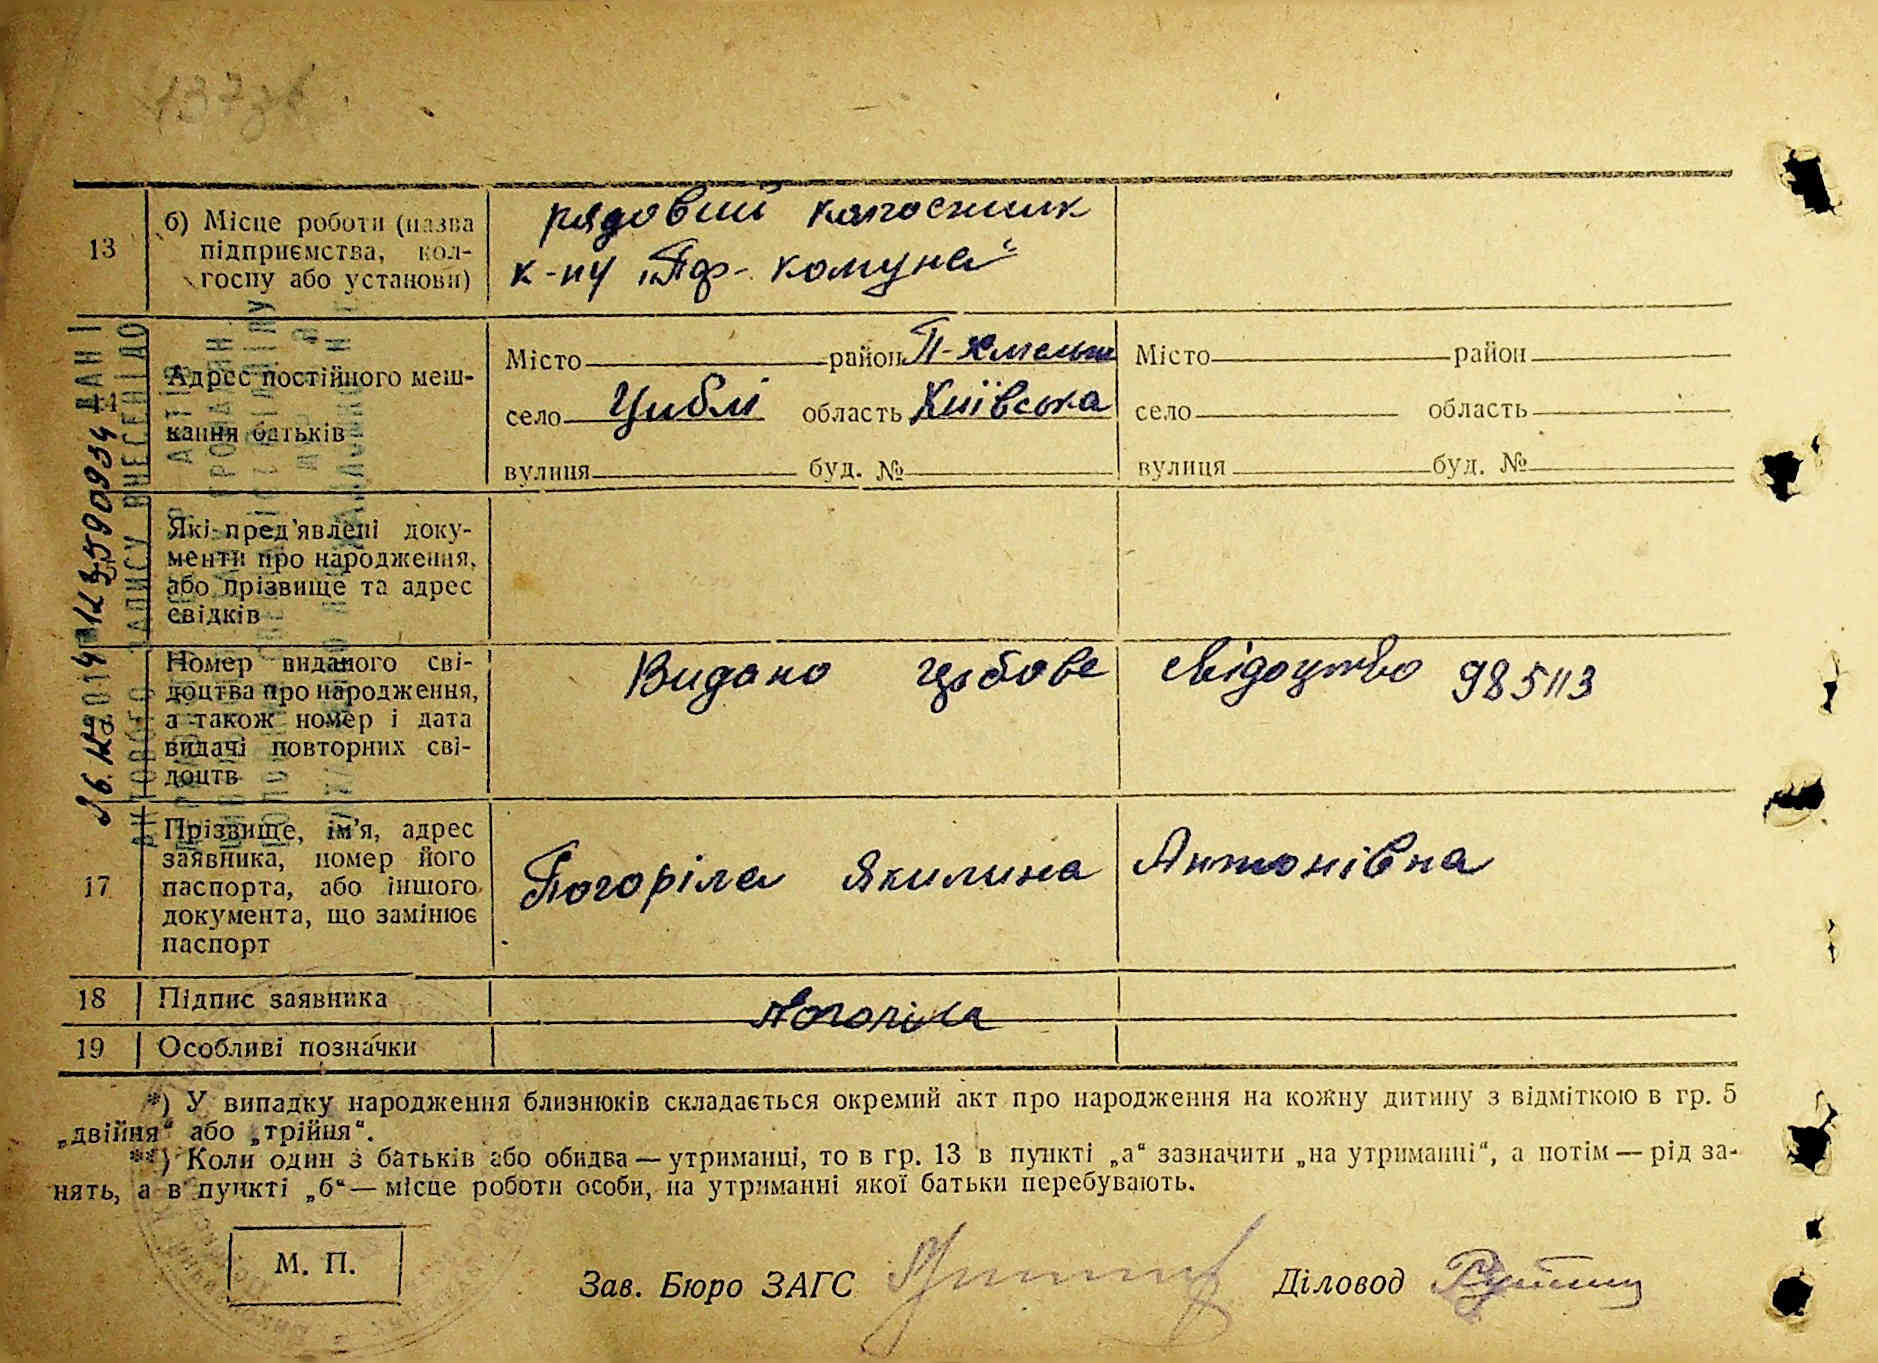 13
б) Місце роботи (назва
підприємства, кол-
госпу або установи)
рядовий колгоспник
к-пу „Пар- комуна“
Адрес постійного меш-
кання батьків
Місто район П-Хмельн
село Циблі область Київська
вулиця буд. №
Місто район
село область
вулиця буд. №
Які пред'явлені доку-
менти про народження,
або прізвище та адрес
свідків
Номер виданого сві-
доцтва про народження,
а також номер і дата
видачі повторних сві-
доцтв
Видано гербове свідоцтво 985113
17
Прізвище, ім'я, адрес
заявника, номер його
паспорта, або іншого
документа, що замінює
паспорт
Погоріла Якилина Антонівна
18 Підпис заявника
Погоріла
19 Особливі позначки
*) У випадку народження близнюків складається окремий акт про народження на кожну дитину з відміткою в гр. 5
„двійня“ або „трійня“.
**) Коли один з батьків або обидва — утриманці, то в гр. 13 в пункті „а“ зазначити „на утриманні“, а потім — рід за-
нять, а в пункті „б“ — місце роботи особи, на утриманні якої батьки перебувають.
М. П.
Зав. Бюро ЗАГС
Діловод